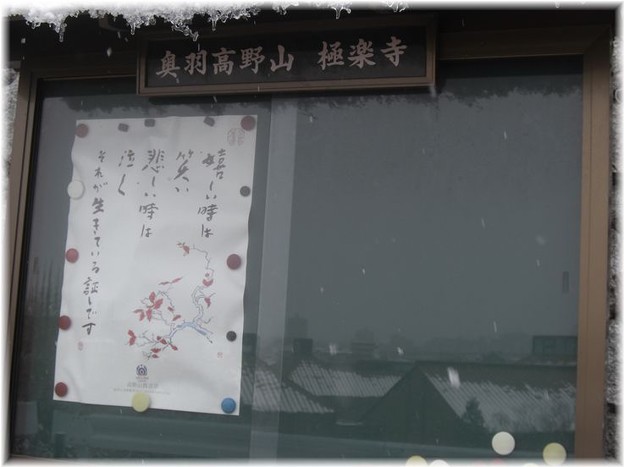 奥羽高野山 極楽寺
嬉しい時は
笑い
悲しい時は
泣く
それが生きている証しです